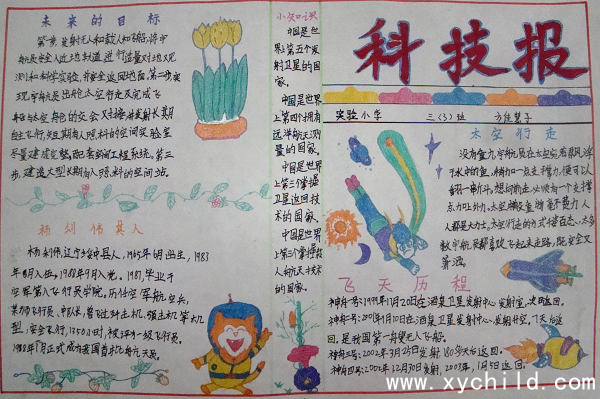 未来的目标
第一步，发射无人和载人飞船，将宇
航员安全入近地轨道，进行适量对地观
测和科学实验，并安全返回地面。第二步实
现宇航员出舱太空行走及完成飞
船与太空舱的交会对接，并发射长期
自主飞行，短期有人照料的空间实验室
尽量建成完整，配套的空间工程系统。第三
步，建造大型长期有人照料的空间站。
杨利伟其人
杨利伟，辽宁绥中县人，1965年6月出生，1983
年8月入伍，1988年9月入党。1987，毕业于
空军第八飞行员学院。历任空军航空兵
某师飞行员，中队长，曾飞过歼击机、强击机等机
型，安全飞行，1350小时，被评为一级飞行员。
1988年1月正式成为我国首批航天员。
小知识
中国是世
界上第五个发
射卫星的国
家。
中国是世界
上第四个拥有
远洋航天测
量的国家。
中国是世界
上第三个掌握
卫星返回技
术的国家。
中国是世界
上第三个掌握载
人航天技术
的国家。
科技报
实验小学 三(3)班
太空行走
没有重力，宇航员在太空就君飘浮
于水中的鱼，稍力加一点支撑力，便可以
翻一串筋斗。想向前走，必须有一个支撑
点力以外力。太空搬设重物毫不费力，人
人都是大力士。太空行走的方式千姿百态，大多
数宇航员都喜欢飞起来走路，既安全又
算洒。
飞天历程
神舟一号：1999年11月20日在酒泉卫星发射中心发射室，次日返回。
神舟二号：2001年1月10日在酒泉卫星发射中心发射升空。7天后返
回，是我国第一艘无人飞船。
神舟三号：2002年3月25日发射180多天后返回。
神舟四号：2002年12月30日发射，2003年，1月5日返回。
www.xychild.com